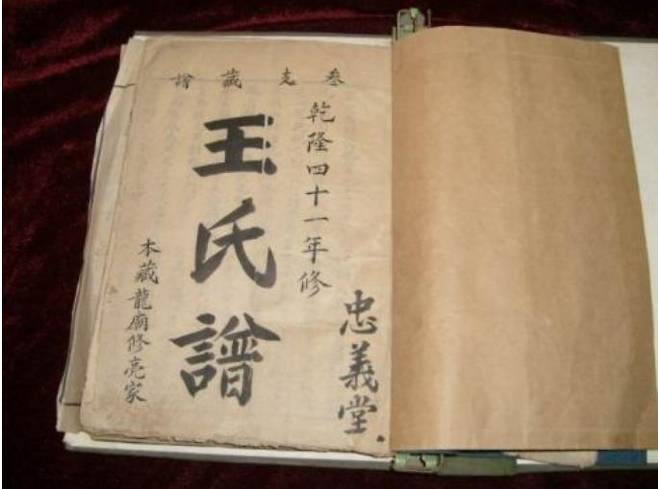 叁支藏譜
乾隆四十一年修
忠義堂
王氏譜
木藏龍廟修亮家